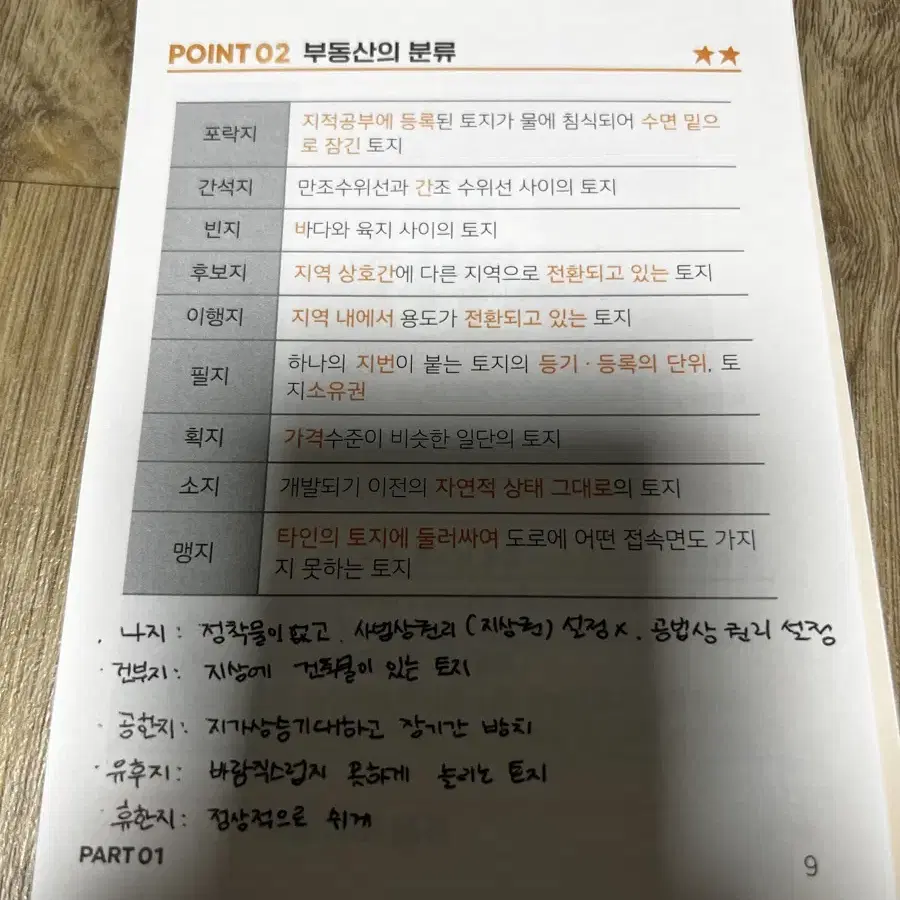 POINT 02 부동산의 분류 ★★
포락지 지적공부에 등록된 토지가 물에 침식되어 수면 밑으
로 잠긴 토지
간석지 만조수위선과 간조 수위선 사이의 토지
빈지 바다와 육지 사이의 토지
후보지 지역 상호간에 다른 지역으로 전환되고 있는 토지
이행지 지역 내에서 용도가 전환되고 있는 토지
필지 하나의 지번이 붙는 토지의 등기·등록의 단위, 토
지소유권
획지 가격수준이 비슷한 일단의 토지
소지 개발되기 이전의 자연적 상태 그대로의 토지
맹지 타인의 토지에 둘러싸여 도로에 어떤 접속면도 가지
지 못하는 토지
· 나지: 정착물이 없고, 사법상권리(지상권) 설정x, 공법상 권리 설정
· 건부지: 지상에 건축물이 있는 토지
· 공한지: 지가상승기대하고 장기간 방치
· 유휴지: 바람직스럽지 못하게 놀리는 토지
· 휴한지: 정상적으로 쉬게
PART 01
9